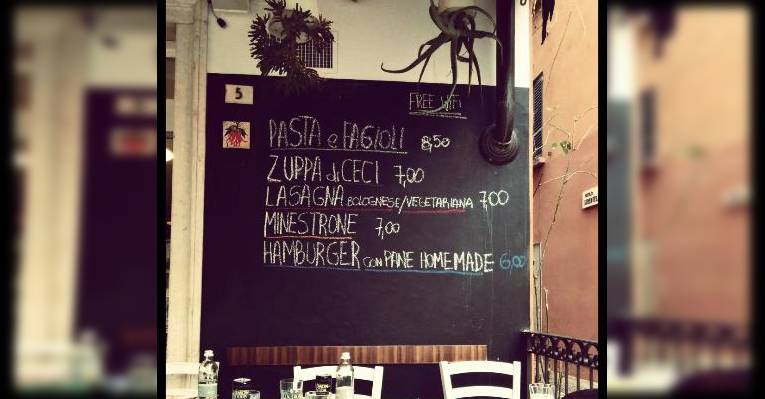 5
FREE WIFI
PASTA e FAGIOLI 8,50
ZUPPA di CECI 7,00
LASAGNA BOLOGNESE/VEGETARIANA 7,00
MINESTRONE 7,00
HAMBURGER CON PANE HOMEMADE 6,00